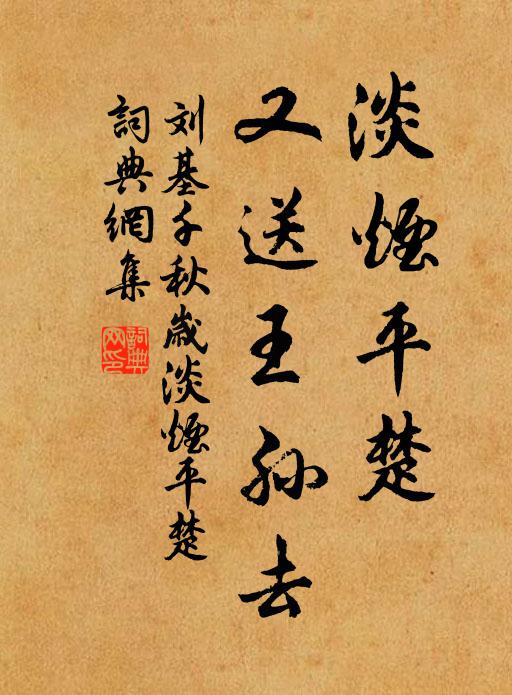 淡煙平楚
又送王孙去
刘基千秋歲淡煙平楚
詞典網集
詞典網印